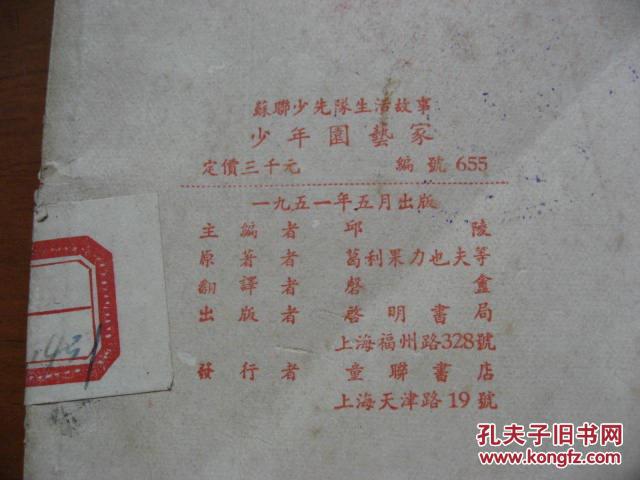 蘇聯少先隊生活故事
少年園藝家
定價三千元 編號655
一九五一年五月出版
主編者 邱陵
原著者 葛利果力也夫等
翻譯者 磬盦
出版者 啓明書局
上海福州路328號
發行者 童聯書店
上海天津路19號
1951
孔夫子旧书网
www.kongfz.com